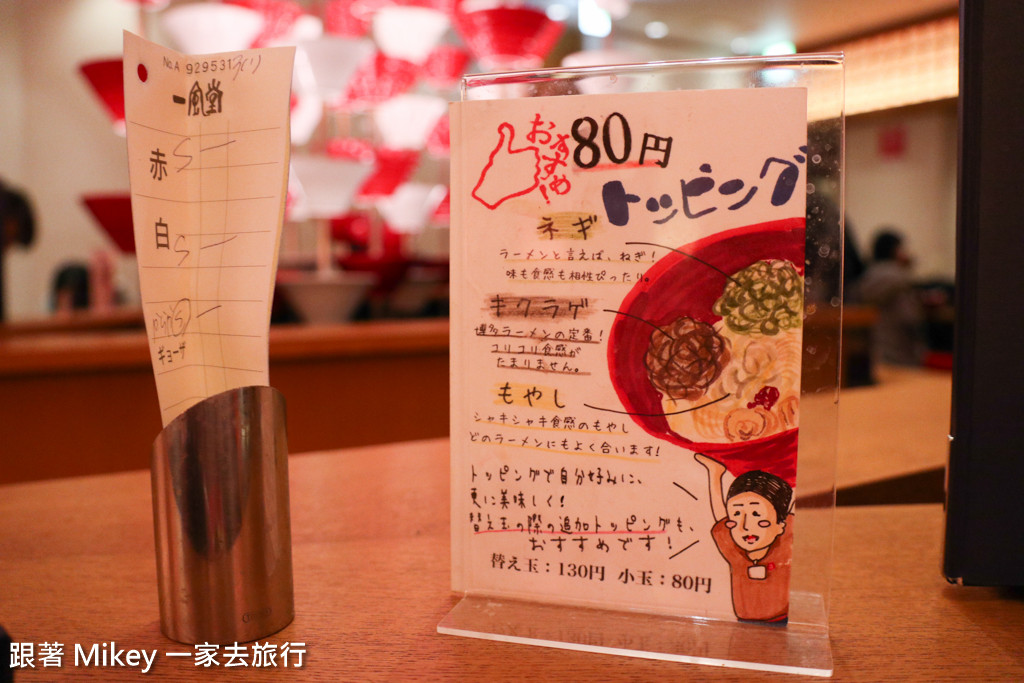 No.A 929531
一風堂
赤 S 一
白 S 一
ギョーザ
おすすめ!
80円
トッピング
ネギ
ラーメンと言えば、ねぎ!
味も食感も相性ぴったり。
キクラゲ
博多ラーメンの定番!
コリコリ食感が
たまりません。
もやし
シャキシャキ食感のもやし
どのラーメンにもよく合います!
トッピングで自分好みに、
更に美味しく!
替え玉の際の追加トッピングも、
おすすめです!
替え玉:130円 小玉:80円
跟著 Mikey 一家去旅行